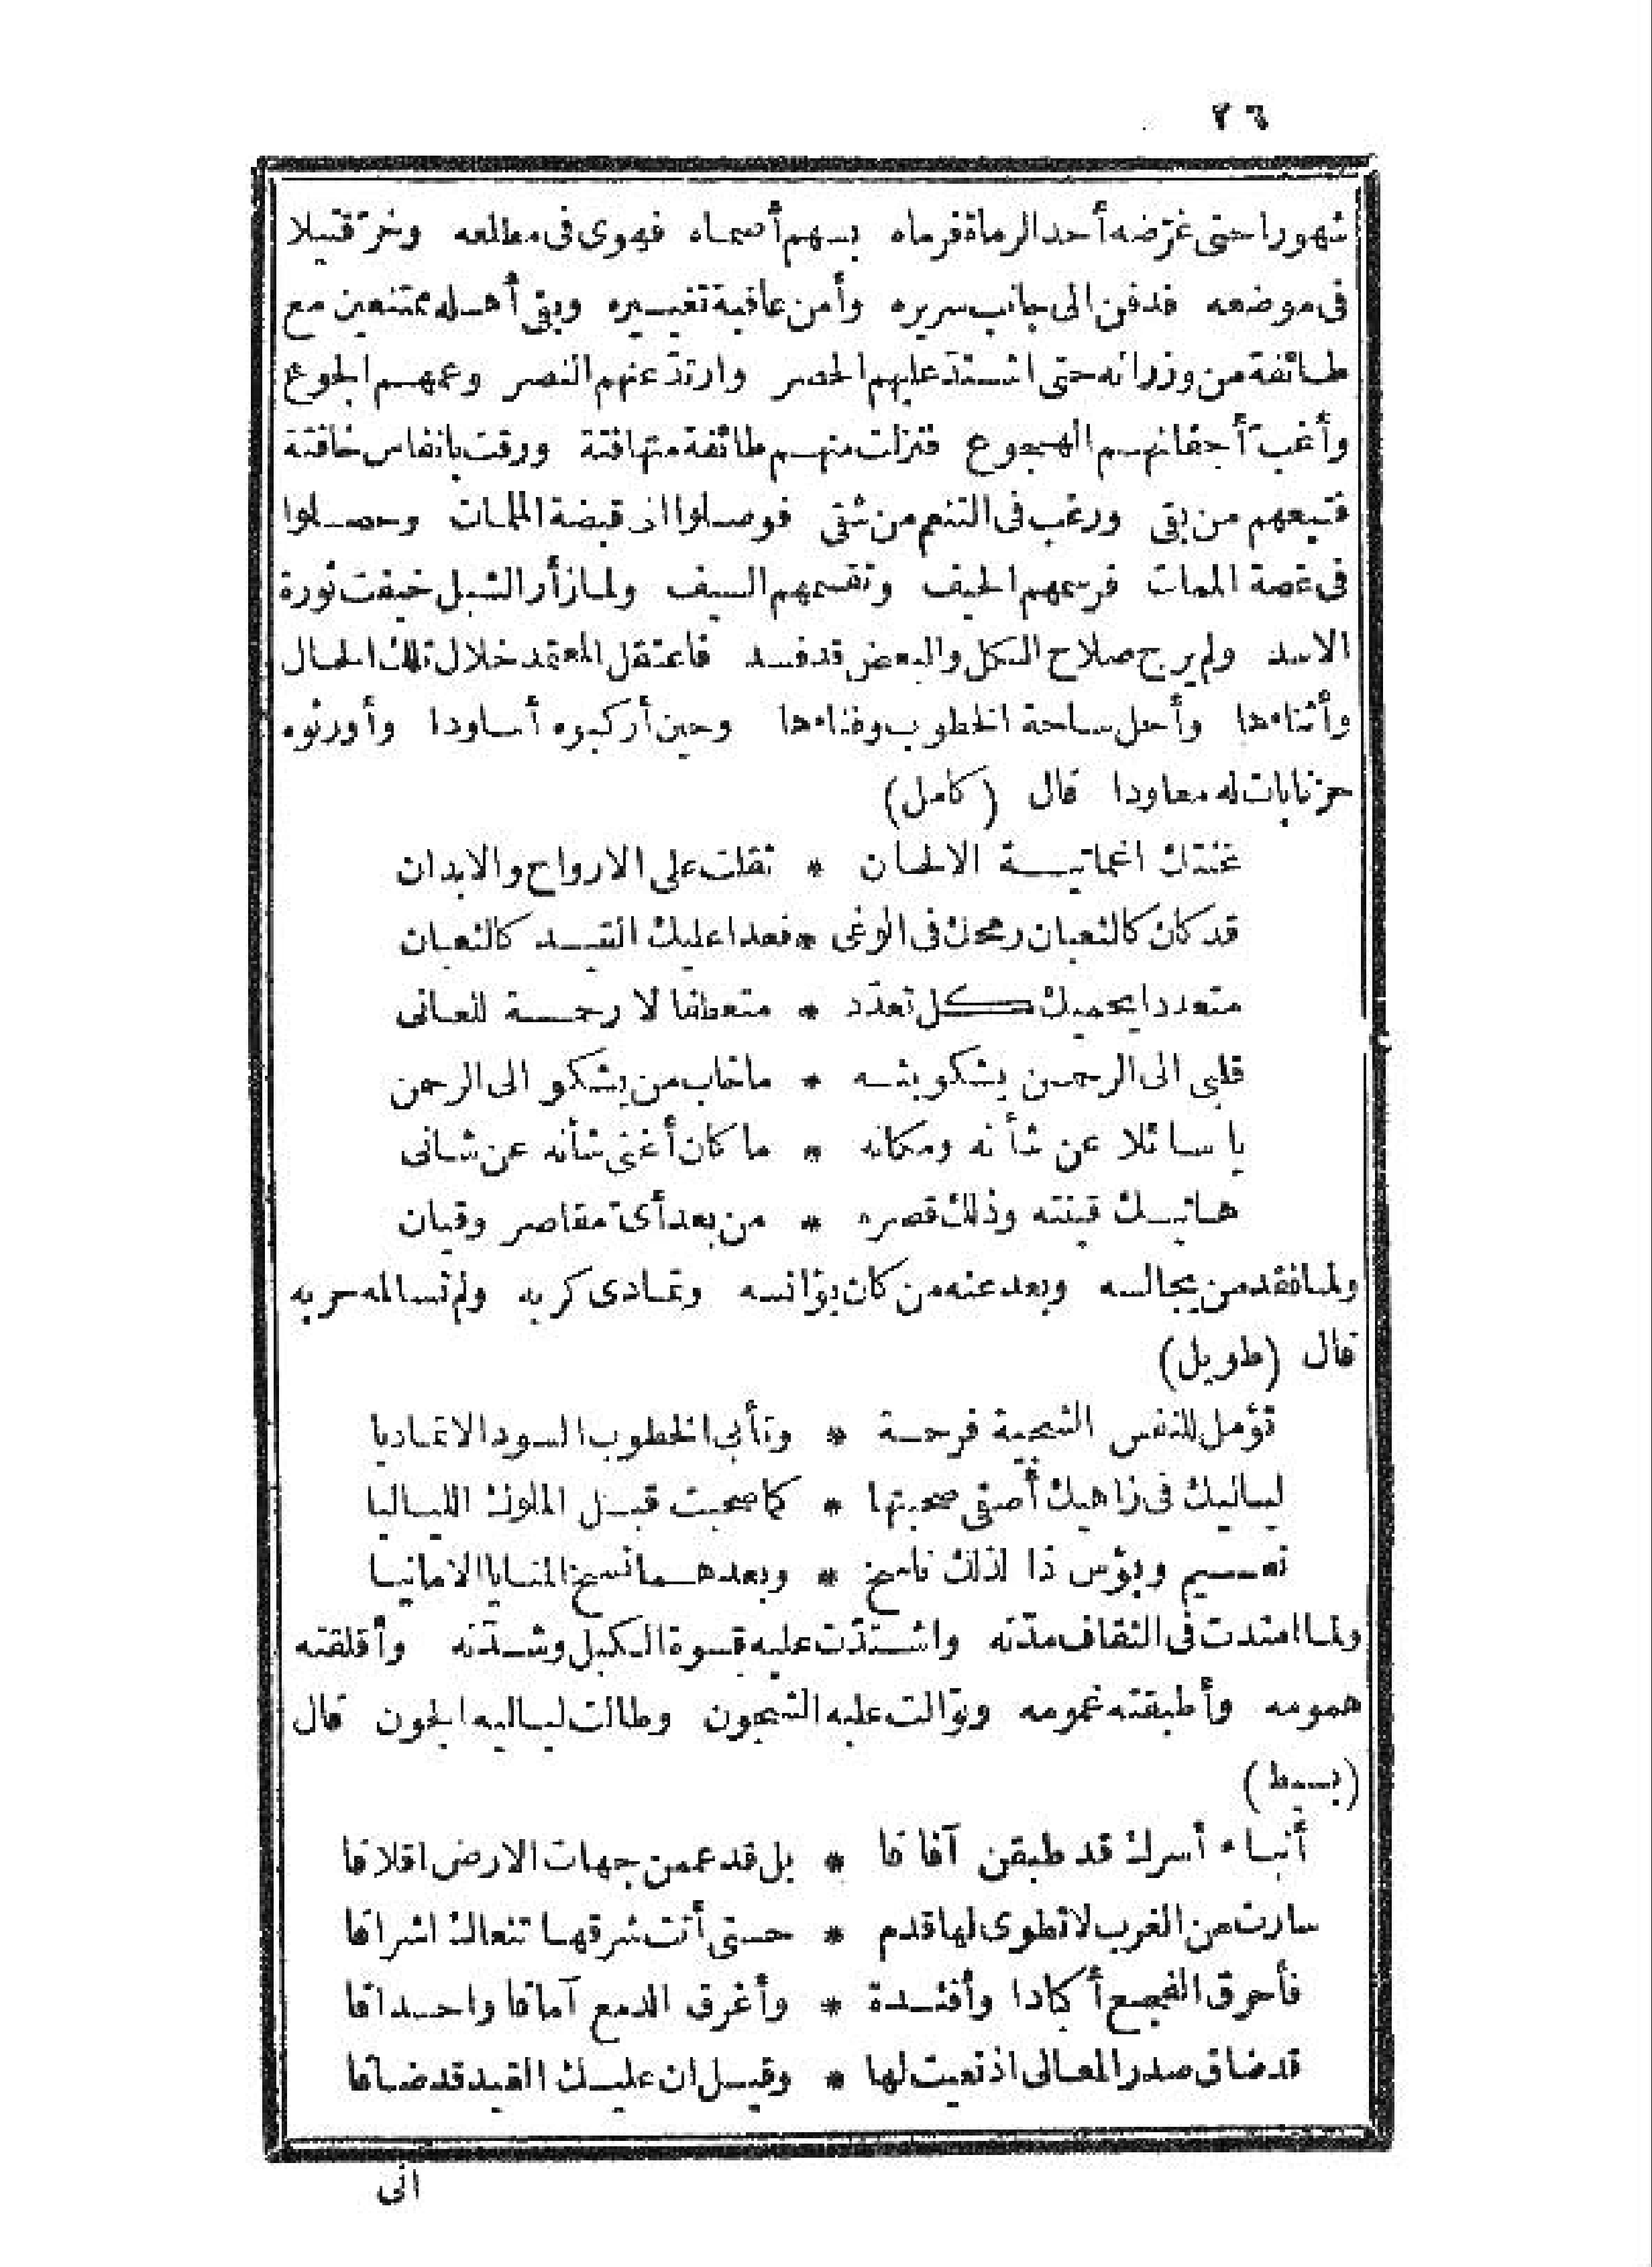 ٢٦
شهورا حتى غرّضه أحد الرماة فرماه بسهم أصماه فهوى فى مطلعه وخرّ قتيلا
فى موضعه فدفن الى جانب سريره وأمن عاقبة تغييره وبقى أهله ممتنعين مع
طائفة من وزرائه حتى اشتدّ عليهم الحصر وارتدّ عنهم النصر وعمهم الجوع
وأغبّ أجفانهم الهجوع فنزلت منهم طائفة متهافتة ورقت بانفاس خافتة
فتبعهم من بقى ورغب فى التنعم من شقى فوصلوا الى قبضة الملمات وحصلوا
فى غصة الممات فرسمهم الحيف وتقسمهم السيف ولما زأر الشبل خيفت ثورة
الاسد ولم يرج صلاح الكل والبعض قد فسد فاعتقل المعتمد خلال تلك الحال
وأثناءها وأحل ساحة الخطوب وفناءها وحين أركبوه أساودا وأورثوه
حزنا بات له معاودا قال (كامل)
غنتك اغماتيـة الالحان * ثقلت على الارواح والابدان
قد كان كالثعبان رمحك فى الوغى * فعدا عليك القيد كالثعبان
متمددا يحميك كل تمدّد * متعطفا لا رحمة للعانى
قلبى الى الرحمن يشكو بثه * ما خاب من يشكو الى الرحمن
يا سائلا عن شأنه ومكانه * ما كان أغنى شأنه عن شانى
هاتيك قينته وذلك قصره * من بعد أىّ مقاصر وقيان
ولما فقد من يجالسه وبعد عنه من كان يؤانسه وتمادى كربه ولم تسالمه حربه
قال (طويل)
تؤمل للنفس الشجية فرحة * وتأبى الخطوب السود الا تماديا
لياليك فى زاهيك أصفى صحبتها * كما صحبت قبل الملوك اللياليا
نعيم وبؤس ذا لذلك ناسخ * وبعدهما نسخ المنايا الامانيا
ولما امتدت فى الثقاف مدّته واشتدّت عليه قسوة الكبل وشدّته وأقلقته
همومه وأطبقته غمومه وتوالت عليه الشجون وطالت لياليه الجون قال
(بسيط)
أنباء أسرك قد طبقن آفاقا * بل قد عممن جهات الارض اقلاقا
سارت من الغرب لا تطوى لها قدم * حتى أتت شرقها تنعاك اشراقا
فأحرق الفجع أكبادا وأفئدة * وأغرق الدمع آماقا واحداقا
قد ضاق صدر المعالى اذ نعيت لها * وقيل ان عليك القيد قد ضاقا
انى